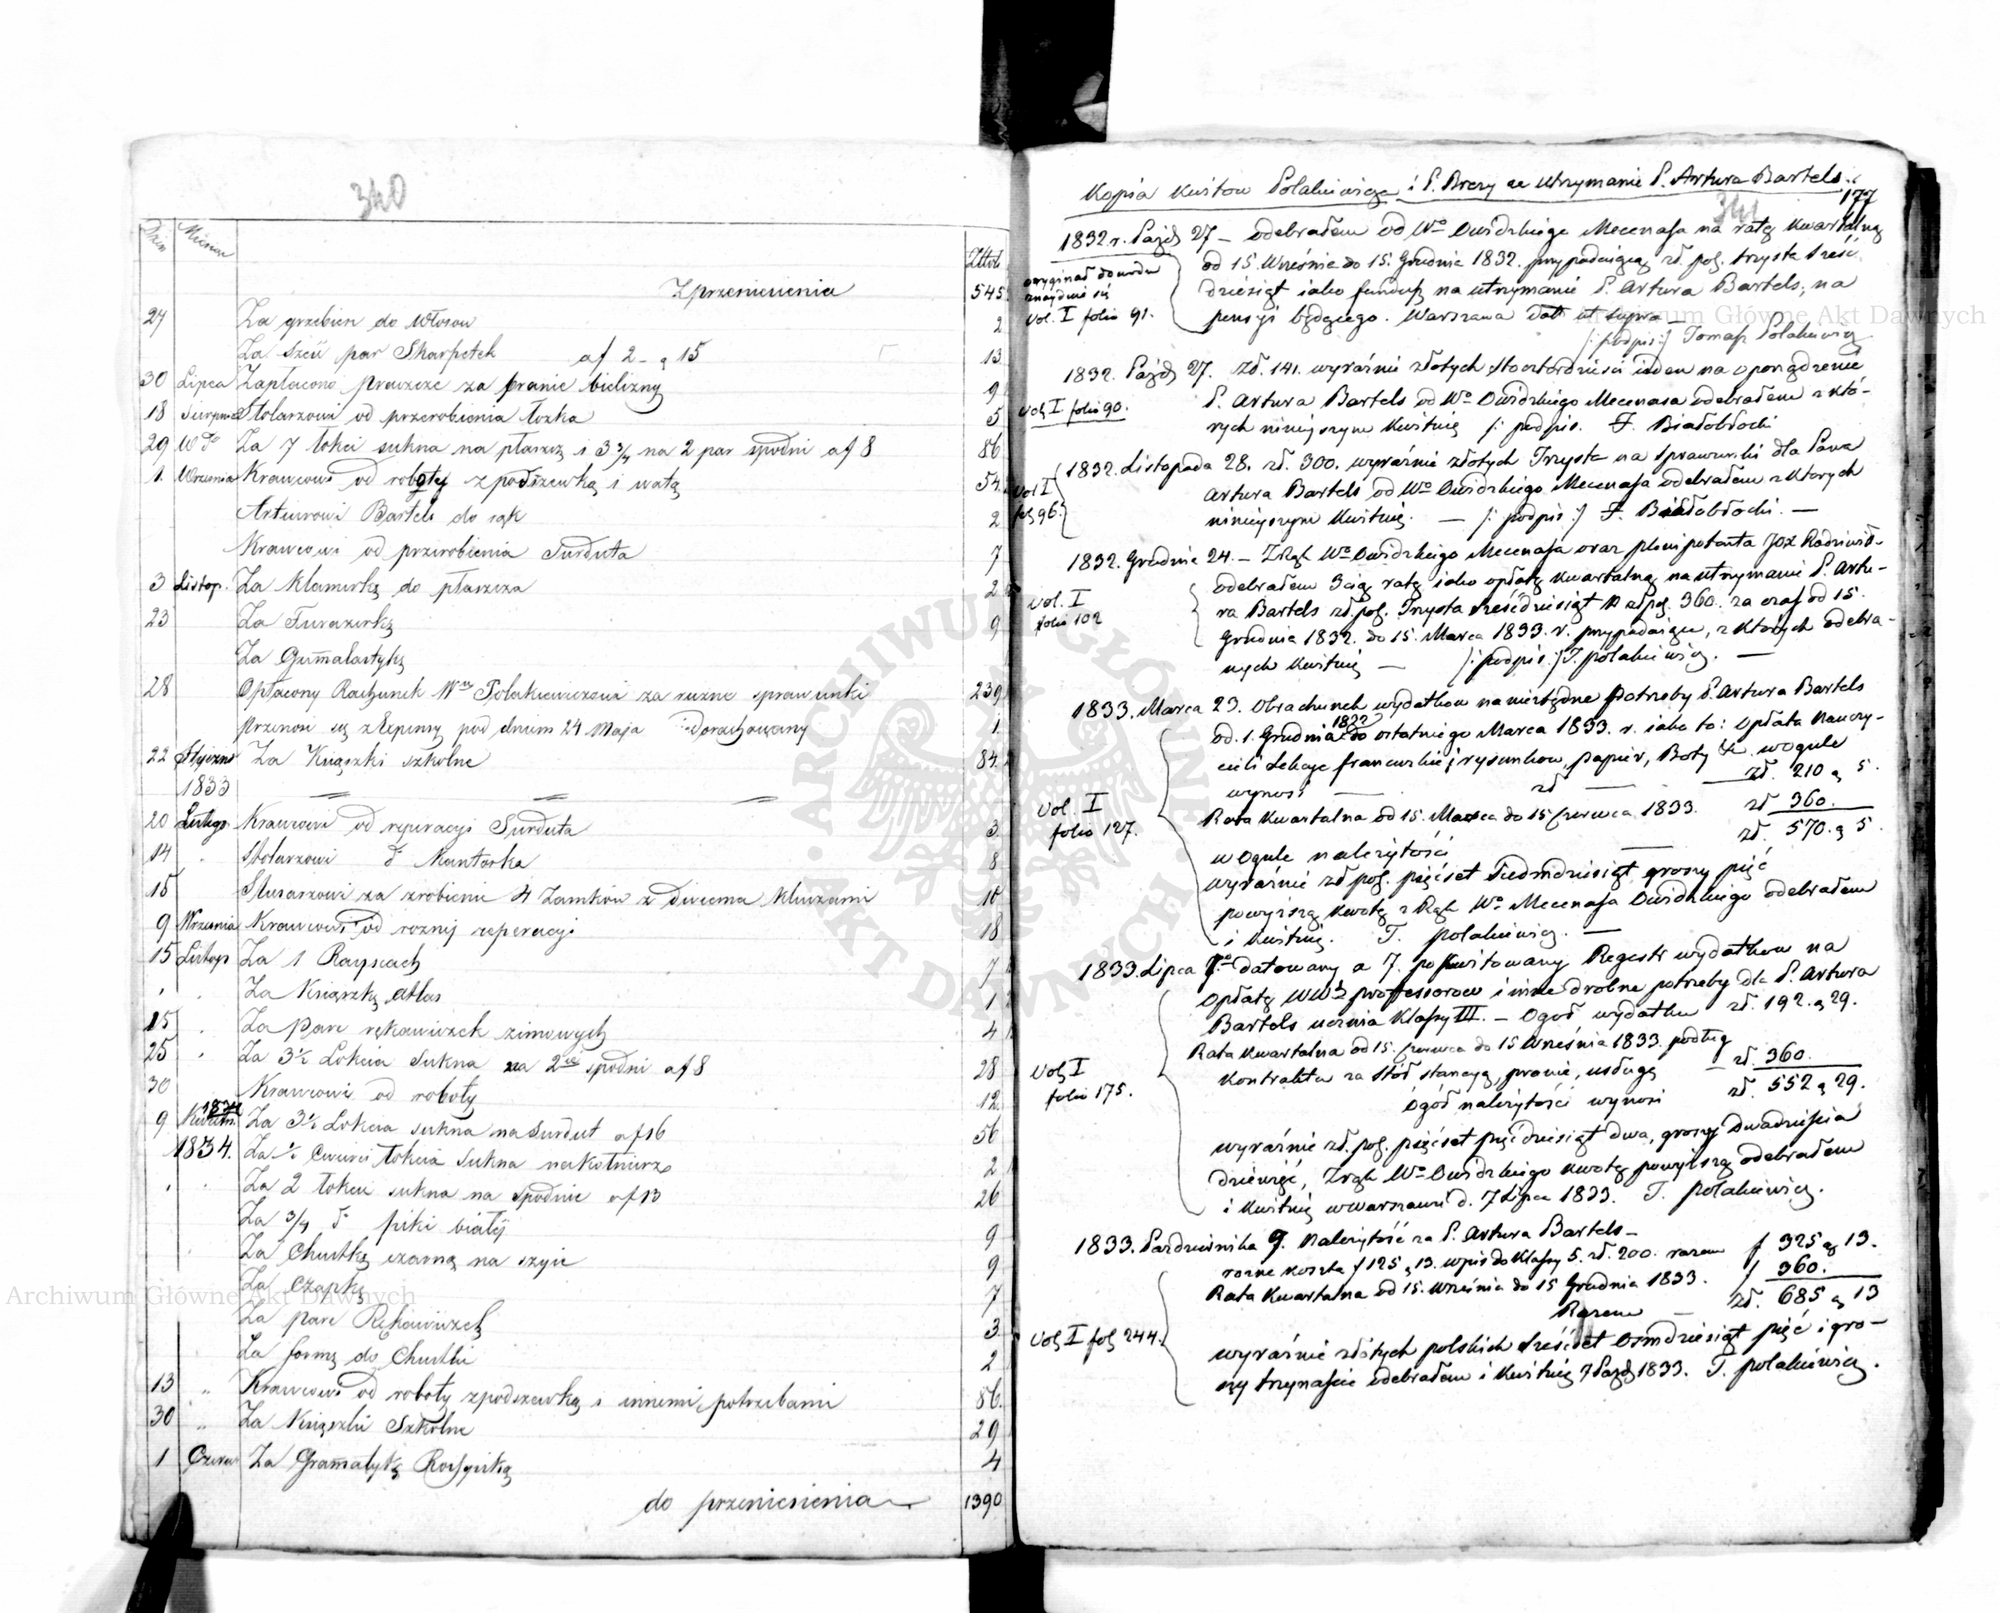 340
Dzień Miesiąc
Złłot
Z przeniesienia 545
24 Za grzebień do Włosów 2
Za sześć par Skarpetek af 2 g 15 13
30 Lipca Zapłacono praczce za pranie bielizny 9
18 Sierpnia Stolarzowi od przerobienia łóżka 5
29 W To Za 7 łokci sukna na płaszcz i 3 3/4 na 2 par spodni af 8 86
1. Września Krawcowi od roboty z podszewką i watą 54
Arturowi Bartels do rąk 2
Krawcowi od przerobienia Surduta 7
3 Listop. Za Klamerkę do płaszcza 2
23 Za Furazerkę 9
Za Gumelastykę
28 Opłacony Rachunek Wmu Polakiewiczowi za rużne sprawunki 239
przenosi się pod dniem 24 Maja 1
22 Styczn Za Książki szkolne 84
1833
20 Lutego Krawcowi od reperacyi Surduta 3
14 Stolarzowi do Kantorka 8
15 Slusarzowi za zrobienie 4 Zamków z dwiema kluczami 10
9 Września Krawcowi od roznej reperacyi 18
15 Listop Za 1 Rayscach 7
Za Książkę Atlas 1
15 Za pare rękawiczek zimowych 4
25 Za 3½ Łokcia Sukna na 2ie spodni af 8 28
30 Krawcowi od roboty 12
9 Kwietn. Za 3½ Łokcia sukna na Surdut af 16 56
1834. Za ½ Cwierci łokcia sukna na kołnierz 2
Za 2 łokcie sukna na spodnie af 13 26
Za 3/4 do piki białej 9
Za Chustkę czarną na szyie 9
Za Czapkę 7
Za pare Rękawiczek 3
Za formę do Chustki 2
13 Krawcowi od roboty z podszewką i innemi potrzebami 86
30 Za Książki Szkolne 29
1 Czerw Za Gramatykę Rossyiską 4
do przeniesienia 1390
Kopia Kwitow Polakiewicza i P. Brezy ze utrzymanie P. Artura Bartels.
177
341
1832 r. Paźd 27 – odebrałem od Wo Owidzkiego Mecenasa na ratę kwartalną
od 15 Września do 15 Grudnia 1832. przypadaiącą zł. pol. trzysta sześć
dziesiąt iako fundusz na utrzymanie P. Artura Bartels, na
pensyi będącego. Warszawa Dat ut supra –
/: podpis :/ Tomasz Polakiewicz
oryginał dowodu
znayduie się
Vol. I folio 91.
1832. Paźd 27. zł. 141. wyraźnie złotych stoczterdzieści ieden na oporządzenie
P. Artura Bartels od Wo Owidzkiego Mecenasa odebrałem z któ-
rych ninieyszym kwituię /: podpis. F. Białobłocki
Vol I folio 90.
1832. Listopada 28. zł. 300. wyraźnie złotych Trzysta na sprawunki dla Pana
Artura Bartels od Wo Owidzkiego Mecenasa odebrałem z których
ninieyszym kwituię. – /: podpis :/ F. Białobłocki. –
Vol I
fol 96.
1832. Grudnia 24. – Z Rąk Wo Owidzkiego Mecenasa oraz plenipotenta JOX Radziwił-
odebrałem 3cią ratę iako opłatę kwartalną na utrzymanie P. Artu-
ra Bartels zł. pol. Trzysta sześćdziesiąt N złpol. 360. za czas od 15.
Grudnia 1832. do 15. Marca 1833. r. przypadaiące, z których odebra-
nych kwituię – /: podpis :/ T. polakiewicz. –
Vol. I
folio 102
1833. Marca 23. Obrachunek wydatkow na niezbędne potrzeby P. Artura Bartels
od. 1. Grudnia 1832 do ostatniego Marca 1833. r. iako to: Opłata Nauczy-
cieli Lekcye francuskiej rysunkow, papier, Boty &c wogule
wynosi – zł – zł. 210 g 5.
Rata Kwartalna od 15. Marca do 15 Czerwca 1833. zł 360.
wogule należytości – zł. 570. g 5.
wyraźnie zł pol. pięćset siedmdziesiąt groszy pięć
powyższą kwotę z Rąk Wo Mecenasa Owidzkiego odebrałem
i kwituię. T. polakiewicz. –
Vol. I
folio 127.
1833. Lipca 7o datowany a 7. pokwitowany Regestr wydatkow na
Opłatę WWch professorow i inne drobne potrzeby dla P. Artura
Bartels ucznia Klassy III. – Ogoł wydatku zł. 192. g 29.
Rata kwartalna od 15. Czerwca do 15 Września 1833. podług
kontraktu za Stół stancyą, pranie, usługę – zł. 360.
Ogół należytości wynosi zł. 552 g 29.
wyraźnie zł. pol. pięćset pięćdziesiąt dwa, groszy Dwadzieścia
dziewięć, Z rąk Wo Owidzkiego kwotę powyższą odebrałem
i kwituię w Warszawie d. 7 Lipca 1833. T. polakiewicz.
Vol I
folio 175.
1833. Pazdziernika 9. Należytość za P. Artura Bartels –
rozne koszta f 125 g 13. wpis do Klassy 5. zł. 200. razem f 325 g 13.
Rata kwartalna od 15. Września do 15 Grudnia 1833. f 360.
Razem – zł. 685 g 13
wyraźnie złotych polskich sześćset Osmdziesiąt pięć i gro-
szy trzynaście odebrałem i kwituię 7 Paźd 1833. T. polakiewicz.
Vol I fol 244.
Archiwum Główne Akt Dawnych
Archiwum Główne Akt Dawnych
ARCHIWUM GŁÓWNE AKT DAWNYCH